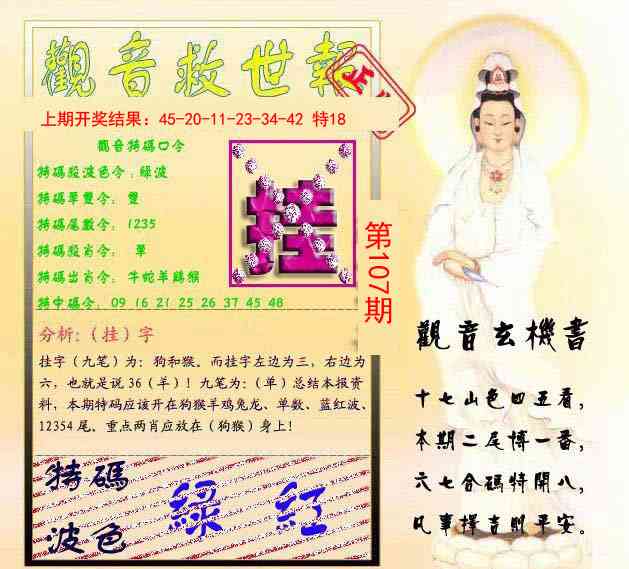 觀音救世報
上期开奖结果：45-20-11-23-34-42 特18
觀音特碼口令
特碼段波色令：綠波
特碼單雙令： 雙
特碼尾數令： 1235
特碼段肖令： 單
特碼出肖令：牛蛇羊鷄猴
特中碼令：09 16 21 25 26 37 45 48
挂
第107期
分析:（挂）字
挂字（九笔）为：狗和猴。而挂字左边为三，右边为
六，也就是说 36（羊）！九笔为：（单）总结本报资
料，本期特码应该开在狗猴羊鸡兔龙、单数、蓝红波、
12354 尾。重点两肖应放在（狗猴）身上！
特碼
波色
綠 紅
觀音玄機書
十七山色四五看，
本期二尾博一番，
六七合碼特開八，
凡事擇吉則平安。